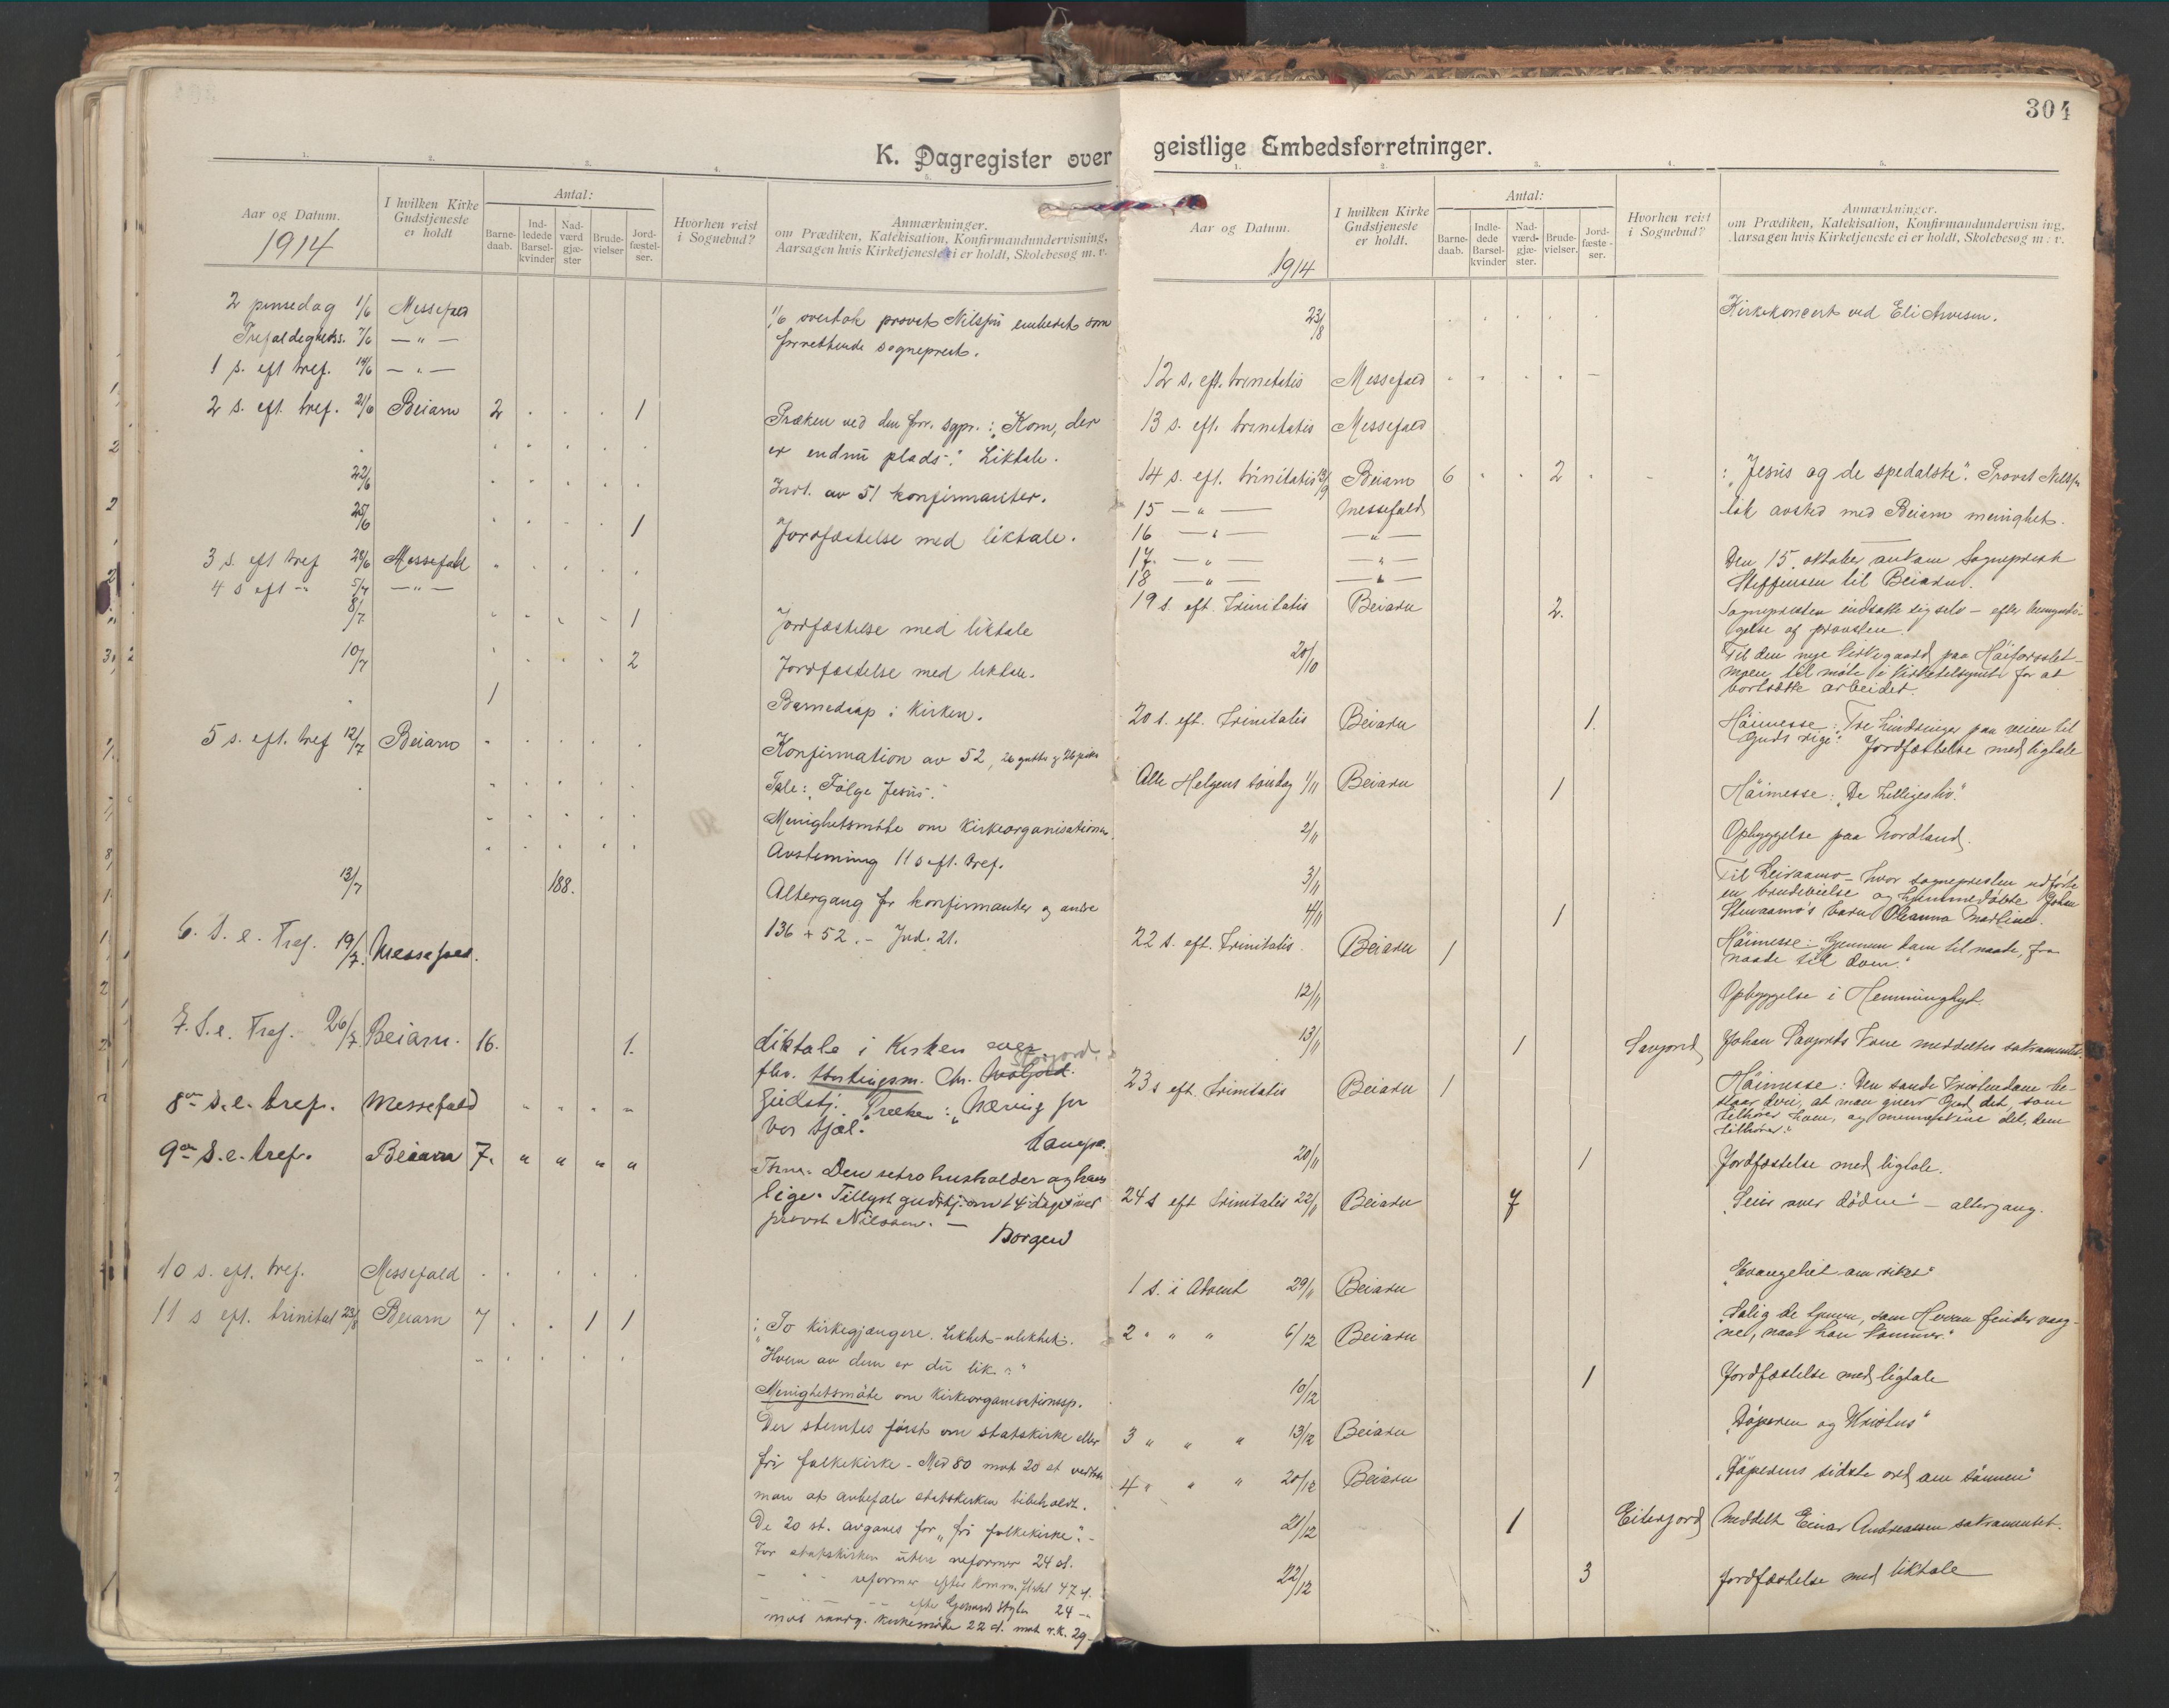 304
K. Dagregister over geistlige Embedsforretninger.
1. 2. 3. 4. 5.
Aar og Datum.
1914
I hvilken Kirke Gudstjeneste er holdt
Antal:
Barnedaab.
Indledede Barselkvinder
Nadværdgjæster
Brudevielser
Jordfæstelser.
Hvorhen reist i Sognebud?
Anmærkninger.
om Prædiken, Katekisation, Konfirmandundervisning,
Aarsagen hvis Kirketjeneste ei er holdt, Skolebesøg m. v.
2 pinsedag 1/6 Messefald 1/6 overtok provst Nilssen embedet som
Trefaldigheds. 7/6 — " — forrettende sogneprest.
1 s. eft tref. 14/6 — " —
2 s. eft. tref. 21/6 Beiarn 2 . . . 1 Præken ved den forr. sgpr.: "Kom, der
er endnu plads". Liktale.
22/6 Indt. av 51 konfirmanter.
25/6 1 Jordfæstelse med liktale.
3 s. eft tref 28/6 Messefald
4 s eft — 5/7 — " —
8/7 1 Jordfæstelse med liktale
10/7 2 Jordfæstelse med liktale.
1 Barnedaap i kirken.
5 s. eft. tref 12/7 Beiarn Konfirmation av 52, 26 gutter og 26 piker
Tale: "Følge Jesus".
Menighetsmøte om kirkeorganisationen.
Avstemning 11 s eft. tref.
13/7 188. Altergang for konfirmanter og andre
136 + 52. - Ind. 21.
6. S. e. Tref. 19/7. Messefald.
7. S. e. Tref. 26/7. Beiarn. 16. 1. Liktale i Kirken over
Storjord.
fhv. Stortingsm. Chr.
Gudstj. Præken: "Næring for
vor sjæl."
8de s. e. tref. Messefald
9de s. e. tref. Beiarn 7. " " " "
Den utro husholder og hans
lige. Tillyst gudstj. om 14 dage ved
provst Nilssen. —
Borgen
10 s. eft. tref. Messefald
11 s eft. trinitat 23/8 Beiarn 7 . . 1 1 : "To kirkegjængere. Likhet - ulikhet.
Hvem av dem er du lik?"
Menighetsmøte om kirkeorganisationssp.
Der stemtes først om statskirke eller
fri folkekirke - Med 80 mot 20 st vedtok
man at anbefale statskirken bibeholdt.
De 20 st. avgaves for "fri folkekirke". -
For statskirken uten reformer 24 st.
— " — reformer efter komm. flertal 47 st.
— " — efter 24 —
mot kirkemøte 22 st. mot 29 -
1. 2. 3. 4. 5.
Aar og Datum.
1914
I hvilken Kirke Gudstjeneste er holdt.
Antal:
Barnedaab.
Indledede Barselkvinder
Nadværdgjæster.
Brudevielser.
Jordfæstelser.
Hvorhen reist i Sognebud?
Anmærkninger.
om Prædiken, Katekisation, Konfirmandundervisning,
Aarsagen hvis Kirketjeneste ei er holdt, Skolebesøg m. v.
23/8 Kirkekoncert ved Eli Arvesen.
12 s. eft. trinitatis Messefald
13 s. eft. trinitatis Messefald
14 s. eft. trinitatis 13/9 Beiarn 6 . . 2 . : "Jesus og de spedalske". Provst Nilssen
15 — " — Messefald tok avsked med Beiarn menighet.
16 — " — — " —
17. — " — — " — Den 15. oktober ankom Sogneprest
18 — " — — " — Steffensen til Beiarn.
19 s. eft. Trinitatis Beiarn 2. Sognepresten indsatte sig selv - efter bemyndigelse af provsten.
20/10 Til den nye kirkegaard paa Høiforsslet-
moen til møte i kirketilsynet for at
bortsætte arbeidet.
20 s. eft. Trinitatis Beiarn 1. Høimesse: "Tre hindringer paa veien til
Guds rige". Jordfæstelse med ligtale
Alle Helgens søndag 1/11 Beiarn 1 Høimesse: "De helliges liv."
2/11 Opbyggelse paa Nordland.
3/11 Til Leiraamo - hvor sognepresten udførte
4/11 1 en brudevielse og hjemmedøbte Johan
Stenaamo's barn Oleanna Martine.
22 s. eft. Trinitatis. Beiarn 1 Høimesse: "Gjennem dom til naade, fra
naade til dom."
12/11 Opbyggelse i Hemminghyt.
13/11 1 Savjord Johan Savjords kone meddeltes sakramentet.
23 s eft. Trinitatis Beiarn 1 Høimesse: "Den sande kristendom be-
staar deri, at man giver Gud det, som
tilhører ham, og menneskene det, dem
tilhører."
20/11 1 Jordfæstelse med ligtale.
24 s eft Trinitatis 22/11 Beiarn 7 "Seier over døden" - altergang.
1 s. i Advent 29/11 Beiarn "Evangeliet om riket"
2 " " " 6/12 Beiarn "Salig de tjenere, som Herren finder vaag-
ne, naar han kommer."
10/12 1 Jordfæstelse med ligtale
3 " " " 13/12 Beiarn "Døperen og Kristus"
4 " " " 20/12 Beiarn "Døperens sidste ord om sønnen"
21/12 1 Eiterjord Meddelt Einar Andreassen sakramentet.
22/12 3 Jordfæstelse med liktale